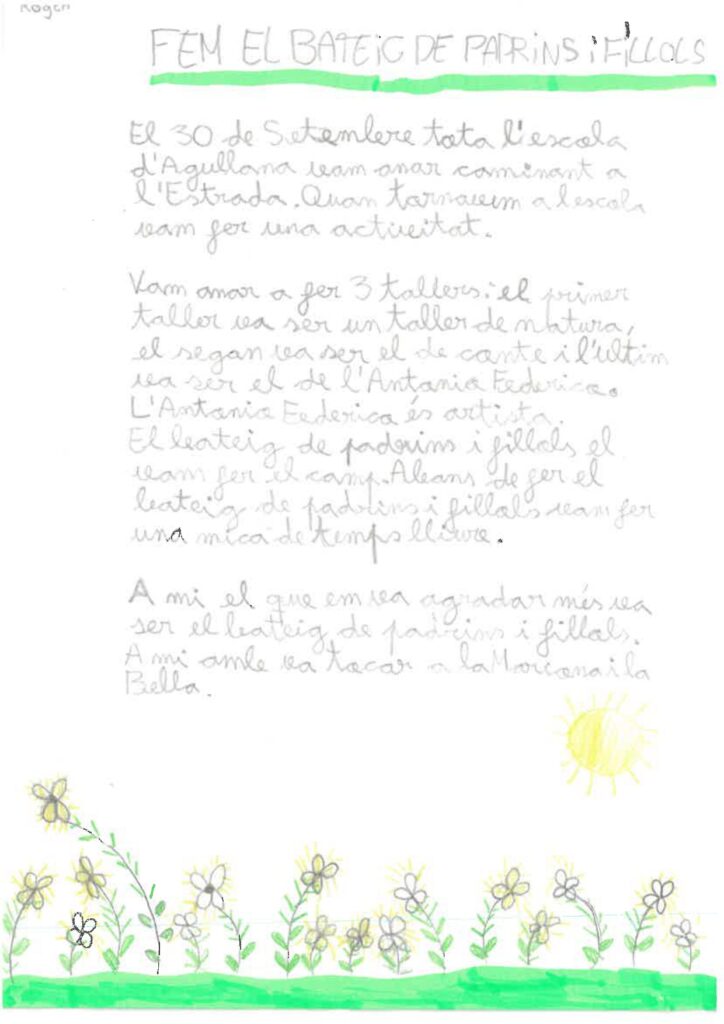 Roger
FEM EL BATEIG DE PADRINS i FILLOLS
El 30 de Setembre tota l'escola
d'Agullana vam anar caminant a
l'Estrada. Quan tornavem a l'escola
vam fer una activitat.
Vam anar a fer 3 tallers: el primer
taller va ser un taller de natura,
el segon va ser el de conte i l'ultim
va ser el de l'Antonia Federica.
L'Antonia Federica és artista.
El bateig de padrins i fillols el
vam fer el camp. Abans de fer el
bateig de padrins i fillols vam fer
una mica de temps lliure.
A mi el que em va agradar més va
ser el bateig de padrins i fillols.
A mi amb va tocar a la Marcona i la
Bella.